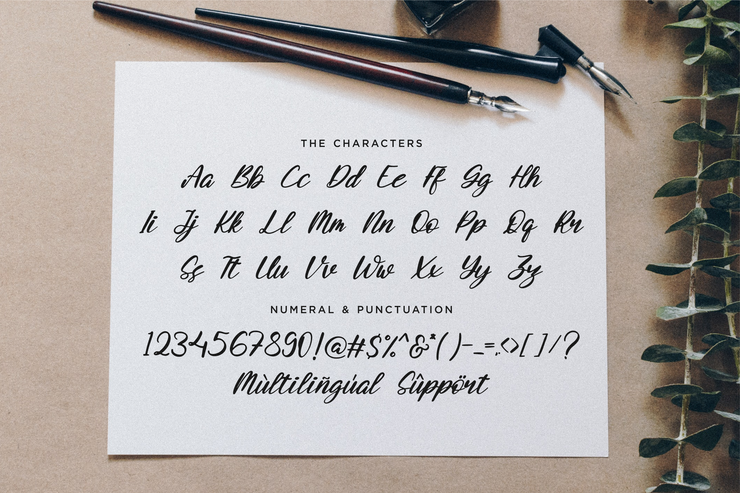 THE CHARACTERS
Aa Bb Cc Dd Ee Ff Gg Hh
Ii Jj Kk Ll Mm Nn Oo Pp Qq Rr
Ss Tt Uu Vv Ww Xx Yy Zz
NUMERAL & PUNCTUATION
1234567890!@#$%^&*()-_=,.<>[]/?
Mùltiliñgúal Sûppört